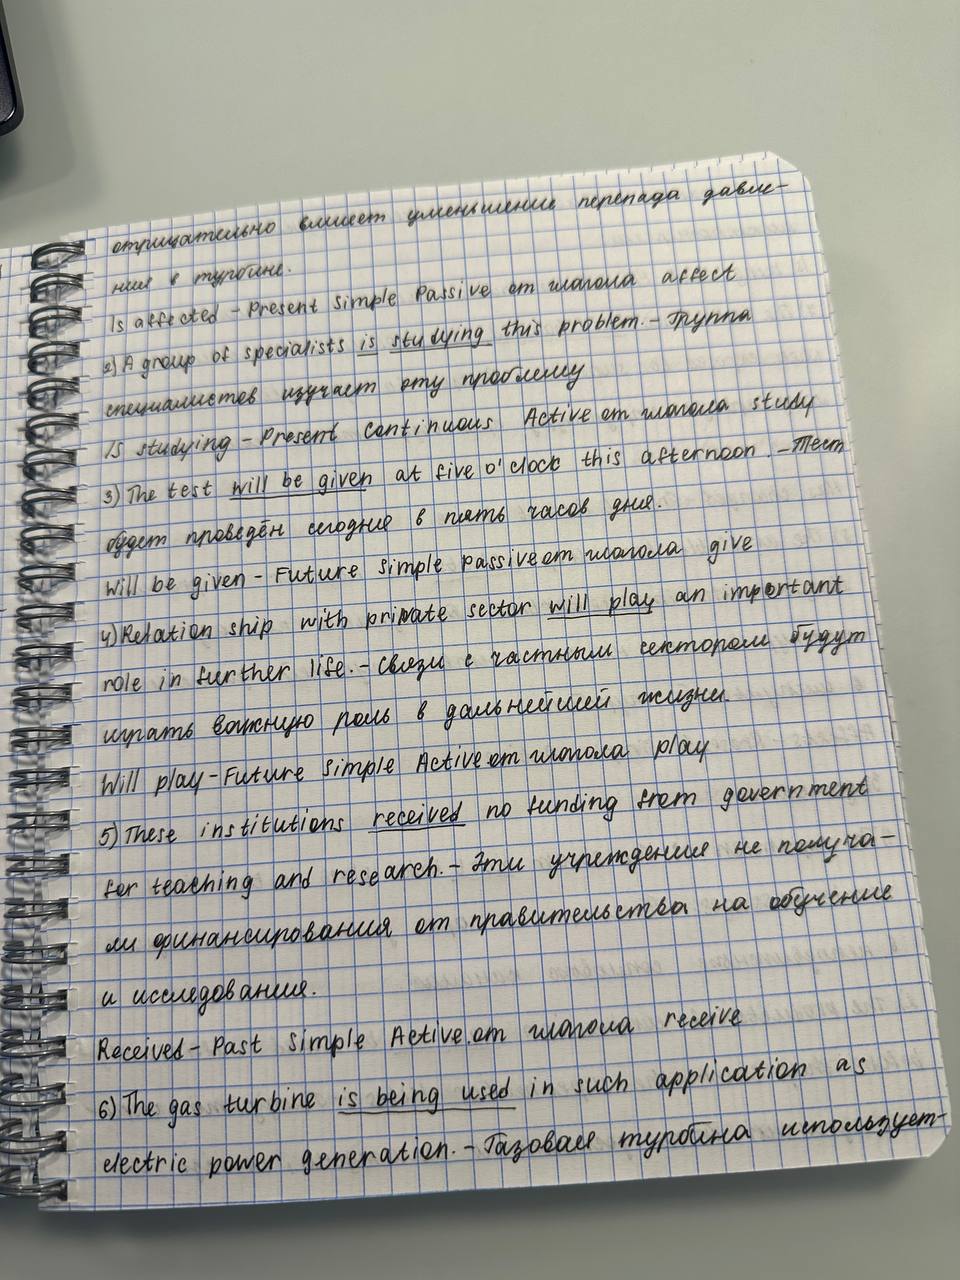 отрицательно влияет уменьшение перепада давле-
ния в турбине.
Is affected - Present Simple Passive от глагола affect
2) A group of specialists is studying this problem. - Группа
специалистов изучает эту проблему
Is studying - Present continuous Active от глагола study
3) The test will be given at five o'clock this afternoon. - Тест
будет проведён сегодня в пять часов дня.
Will be given - Future Simple Passive от глагола give
4) Relation ship with private sector will play an important
role in further life. - Связи с частным сектором будут
играть важную роль в дальнейшей жизни.
Will play - Future Simple Active от глагола play
5) These institutions received no funding from government
for teaching and research. - Эти учреждения не получа-
ли финансирования от правительства на обучение
и исследования.
Received - Past Simple Active от глагола receive
6) The gas turbine is being used in such application as
electric power generation. - Газовая турбина использует-